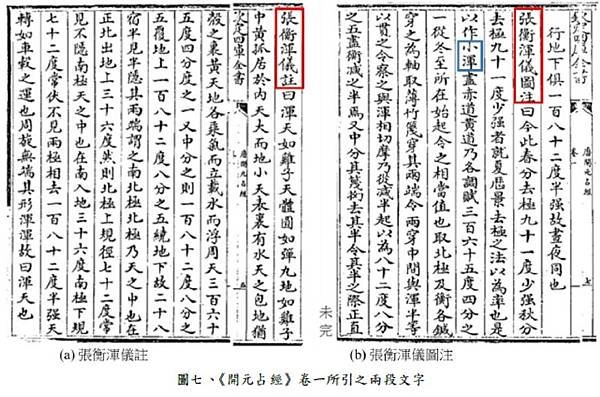 欽定四庫全書
唐開元占經
張衡渾儀註曰渾天如雞子天體圓如彈丸地如雞子
中黃孤居於內天大而地小天表裏有水天之包地猶
殼之裹黃天地各乘氣而立載水而浮周天三百六十
五度四分度之一又中分之則一百八十二度八分之
五覆地上一百八十二度八分之五繞地下故二十八
宿半見半隱其兩端謂之南北極北極乃天之中也在
正北出地上三十六度然則北極上規徑七十二度常
見不隱南極天之中也在南入地三十六度南極下規
七十二度常伏不見兩極相去一百八十二度半强天
轉如車轂之運也周旋無端其形渾渾故曰渾天也
(a) 張衡渾儀註
行地下俱一百八十二度半强故晝夜同也
張衡渾儀圖注曰今此春分去極九十一度少强秋分
去極九十一度少强者就夏歷景去極之法以為率也是
以作小渾盡赤道黃道乃各調賦三百六十五度四分之
一從冬至所在始起令之相當值也取北極及衡各鍼
穿之為軸取薄竹篾穿其兩端令兩穿中間與渾半等
以貫之令察之與渾相切摩乃從減半起以為八十二度八分
之五盡衡減之半焉又中分其篾拘去其半令其半之際正直
唐開元占經
未完
(b) 張衡渾儀圖注
圖七、《開元占經》卷一所引之兩段文字